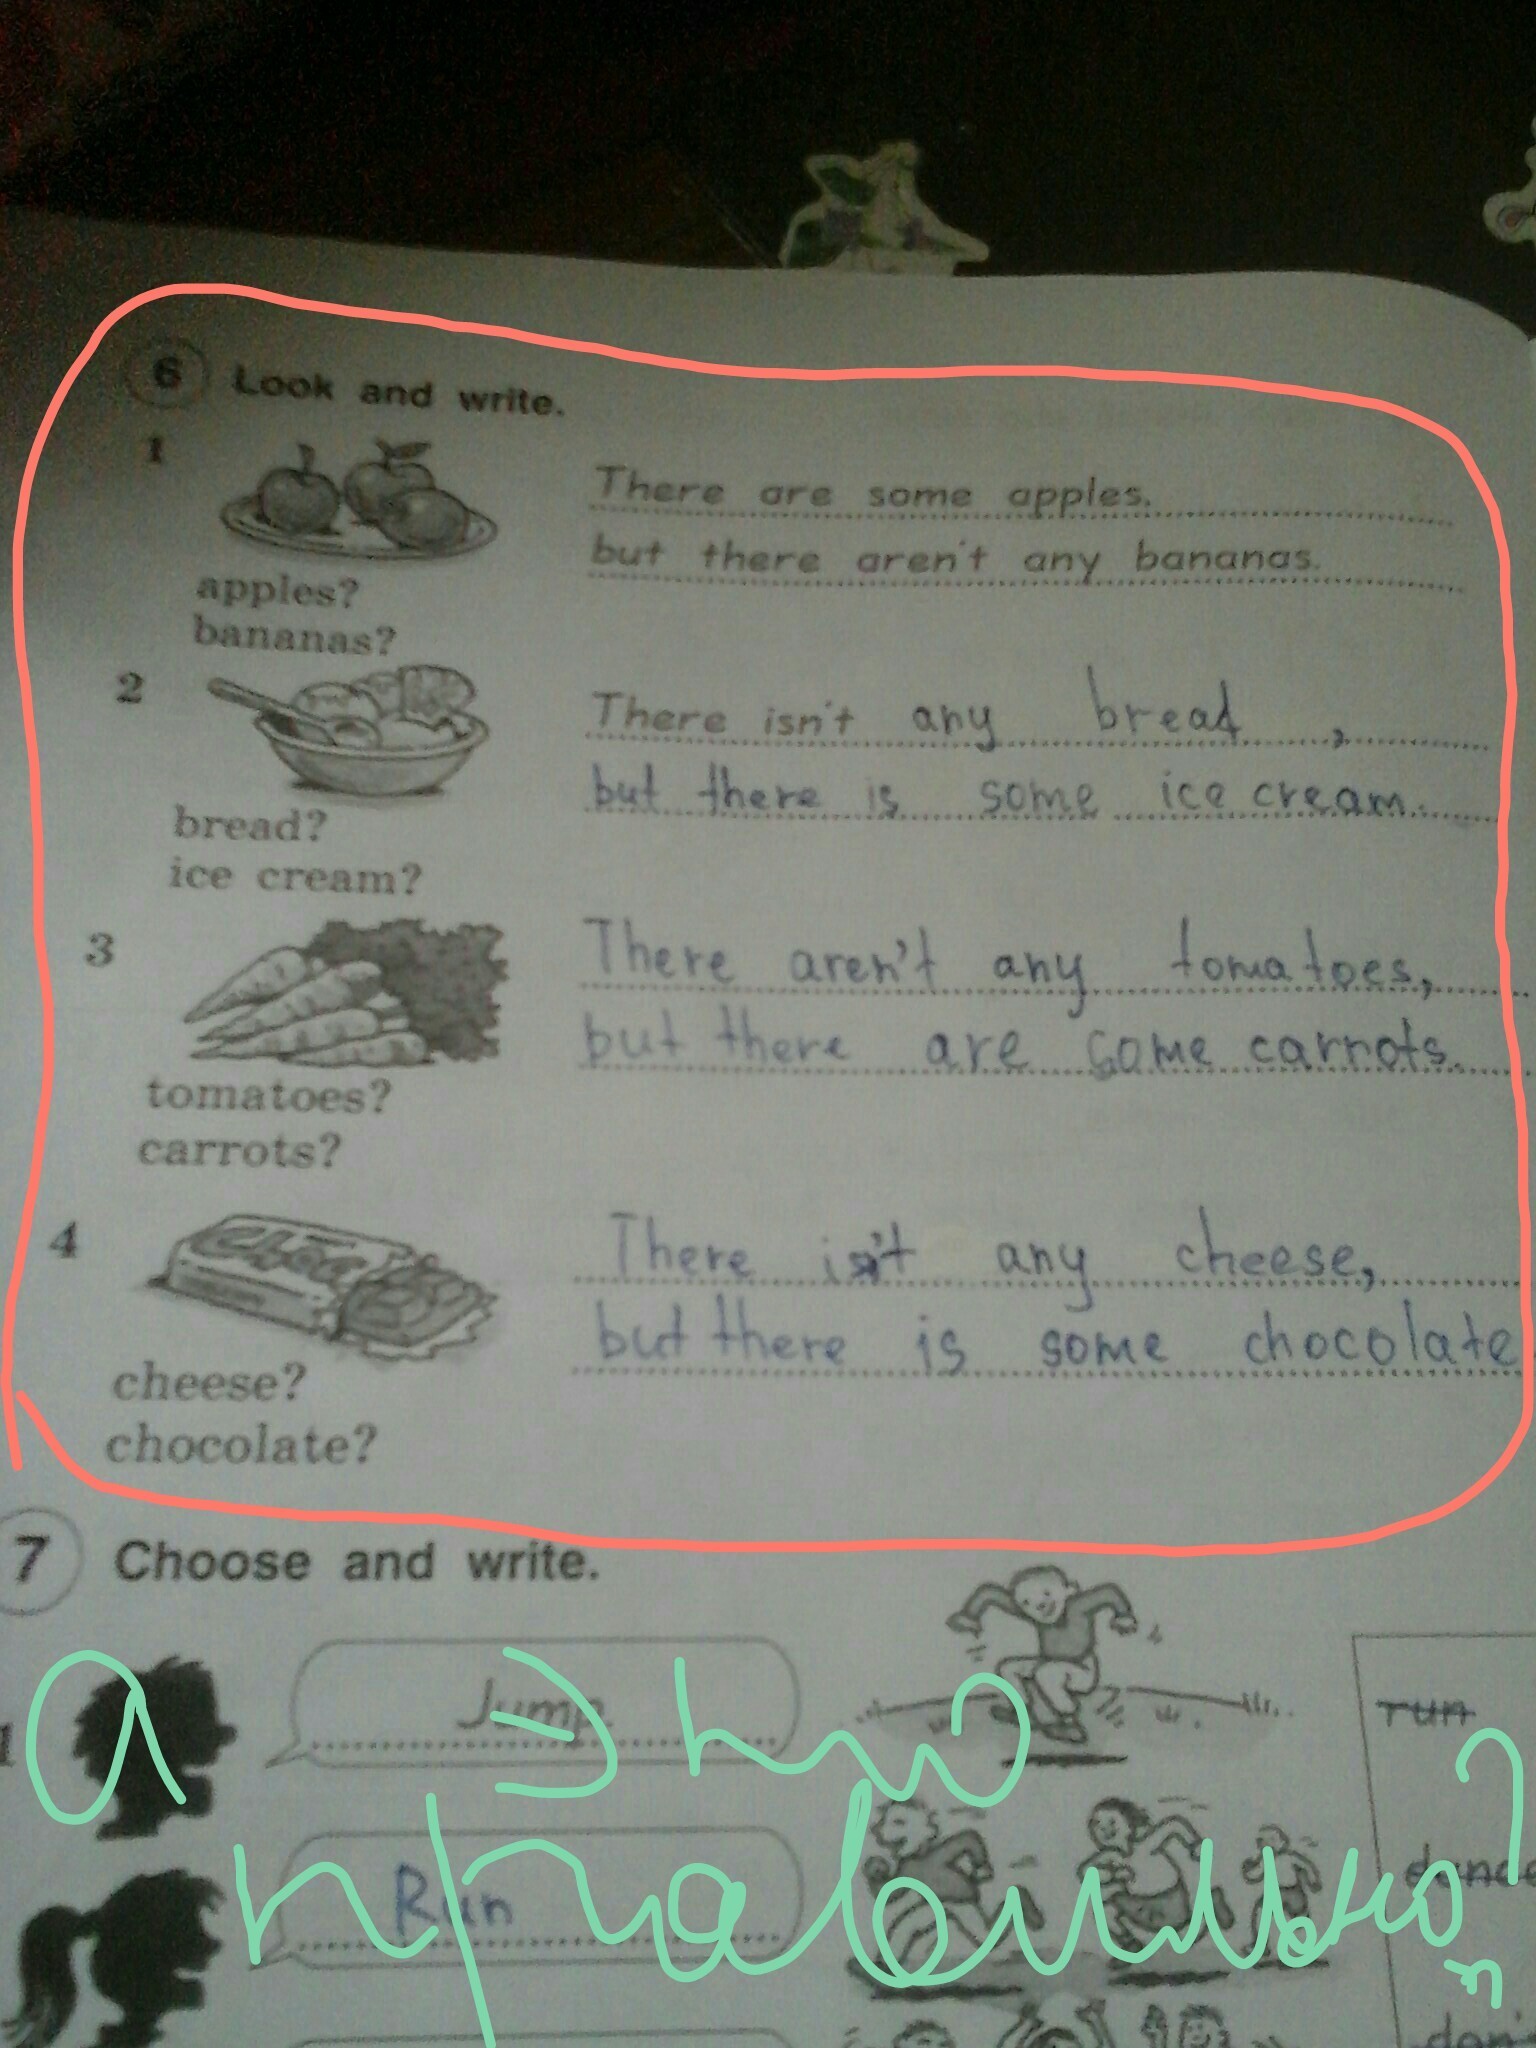 6 Look and write.
1
There are some apples.
but there aren't any bananas.
apples?
bananas?
2
There isn't any bread,
but there is some ice cream.
bread?
ice cream?
3
There aren't any tomatoes,
but there are some carrots.
tomatoes?
carrots?
4
Choco
There isn't any cheese,
but there is some chocolate
cheese?
chocolate?
7 Choose and write.
1
Jump
run
а это
правильно?
Run
dance
don't